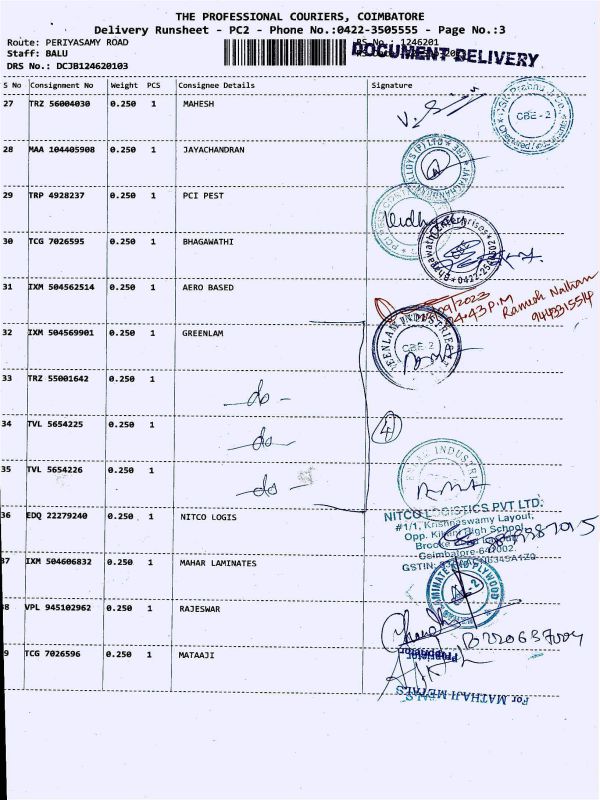 THE PROFESSIONAL COURIERS, COIMBATORE
Delivery Runsheet - PC2 - Phone No.:0422-3505555 - Page No.:3
Route: PERIYASAMY ROAD RS No.: 1246201
DOCUMENT DELIVERY
Staff: BALU
DRS No.: DCJB124620103
S No Consignment No Weight PCS Consignee Details Signature
27 TRZ 56004030 0.250 1 MAHESH
CBE - 2
28 MAA 104405908 0.250 1 JAYACHANDRAN
29 TRP 4928237 0.250 1 PCI PEST
Vidhya
30 TCG 7026595 0.250 1 BHAGAWATHI
31 IXM 504562514 0.250 1 AERO BASED
/09/2023
04.43 P.M
Ramesh Nathan
32 IXM 504569901 0.250 1 GREENLAM
CBE - 2
33 TRZ 55001642 0.250 1
do -
34 TVL 5654225 0.250 1
do
4
35 TVL 5654226 0.250 1
do -
36 EDQ 22279240 0.250 1 NITCO LOGIS
NITCO LOGISTICS PVT LTD.
#1/1, Krishnaswamy Layout,
Opp. Kikani High School,
Coimbatore-641002.
GSTIN:
37 IXM 504606832 0.250 1 MAHAR LAMINATES
38 VPL 945102962 0.250 1 RAJESWAR
Proprietor
39 TCG 7026596 0.250 1 MATAAJI
For MATHAJI METALS